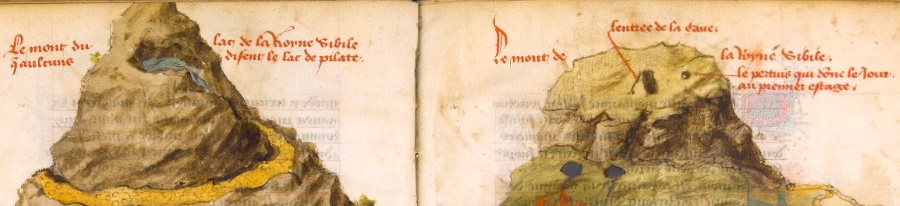 Le mont du lac de la Royne Sibile
q̃ aultuns disent le lac de pilate.
lentree de la cave.
Le mont de la Royne Sibile.
le pertuis qui dõne le Jour
au premier estage.